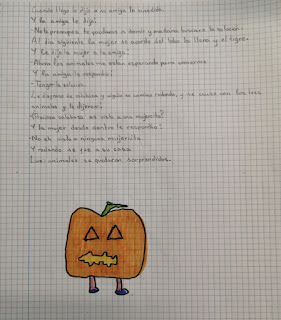 Cuando llego le dijo a su amiga lo sucedido.
Y la amiga le dijo:
-No te preocupes te quedaras a dormir y mañana buscare la solución.
Al día siguiente la mujer se acordo del lobo, la llena y el tigre.
Y le dijo la mujer a la amiga:
-Ahora los animales me estan esperando para comerme
Y la amiga le respondio:
-Tengo la solución.
Le disfrazo de calabaza y siguio su camino rodando, y se cruzo con los tres
animales y le dijeron:
¿Calabaza has visto a una mujercita?
Y la mujer desde dentro le respondio:
-No eh visto a ninguna mujercita
Y rodando se fue a su casa.
Los animales se quedaron sorprendidos.